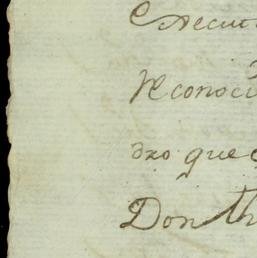 Execut
Reconoci
dxo que
Don Th